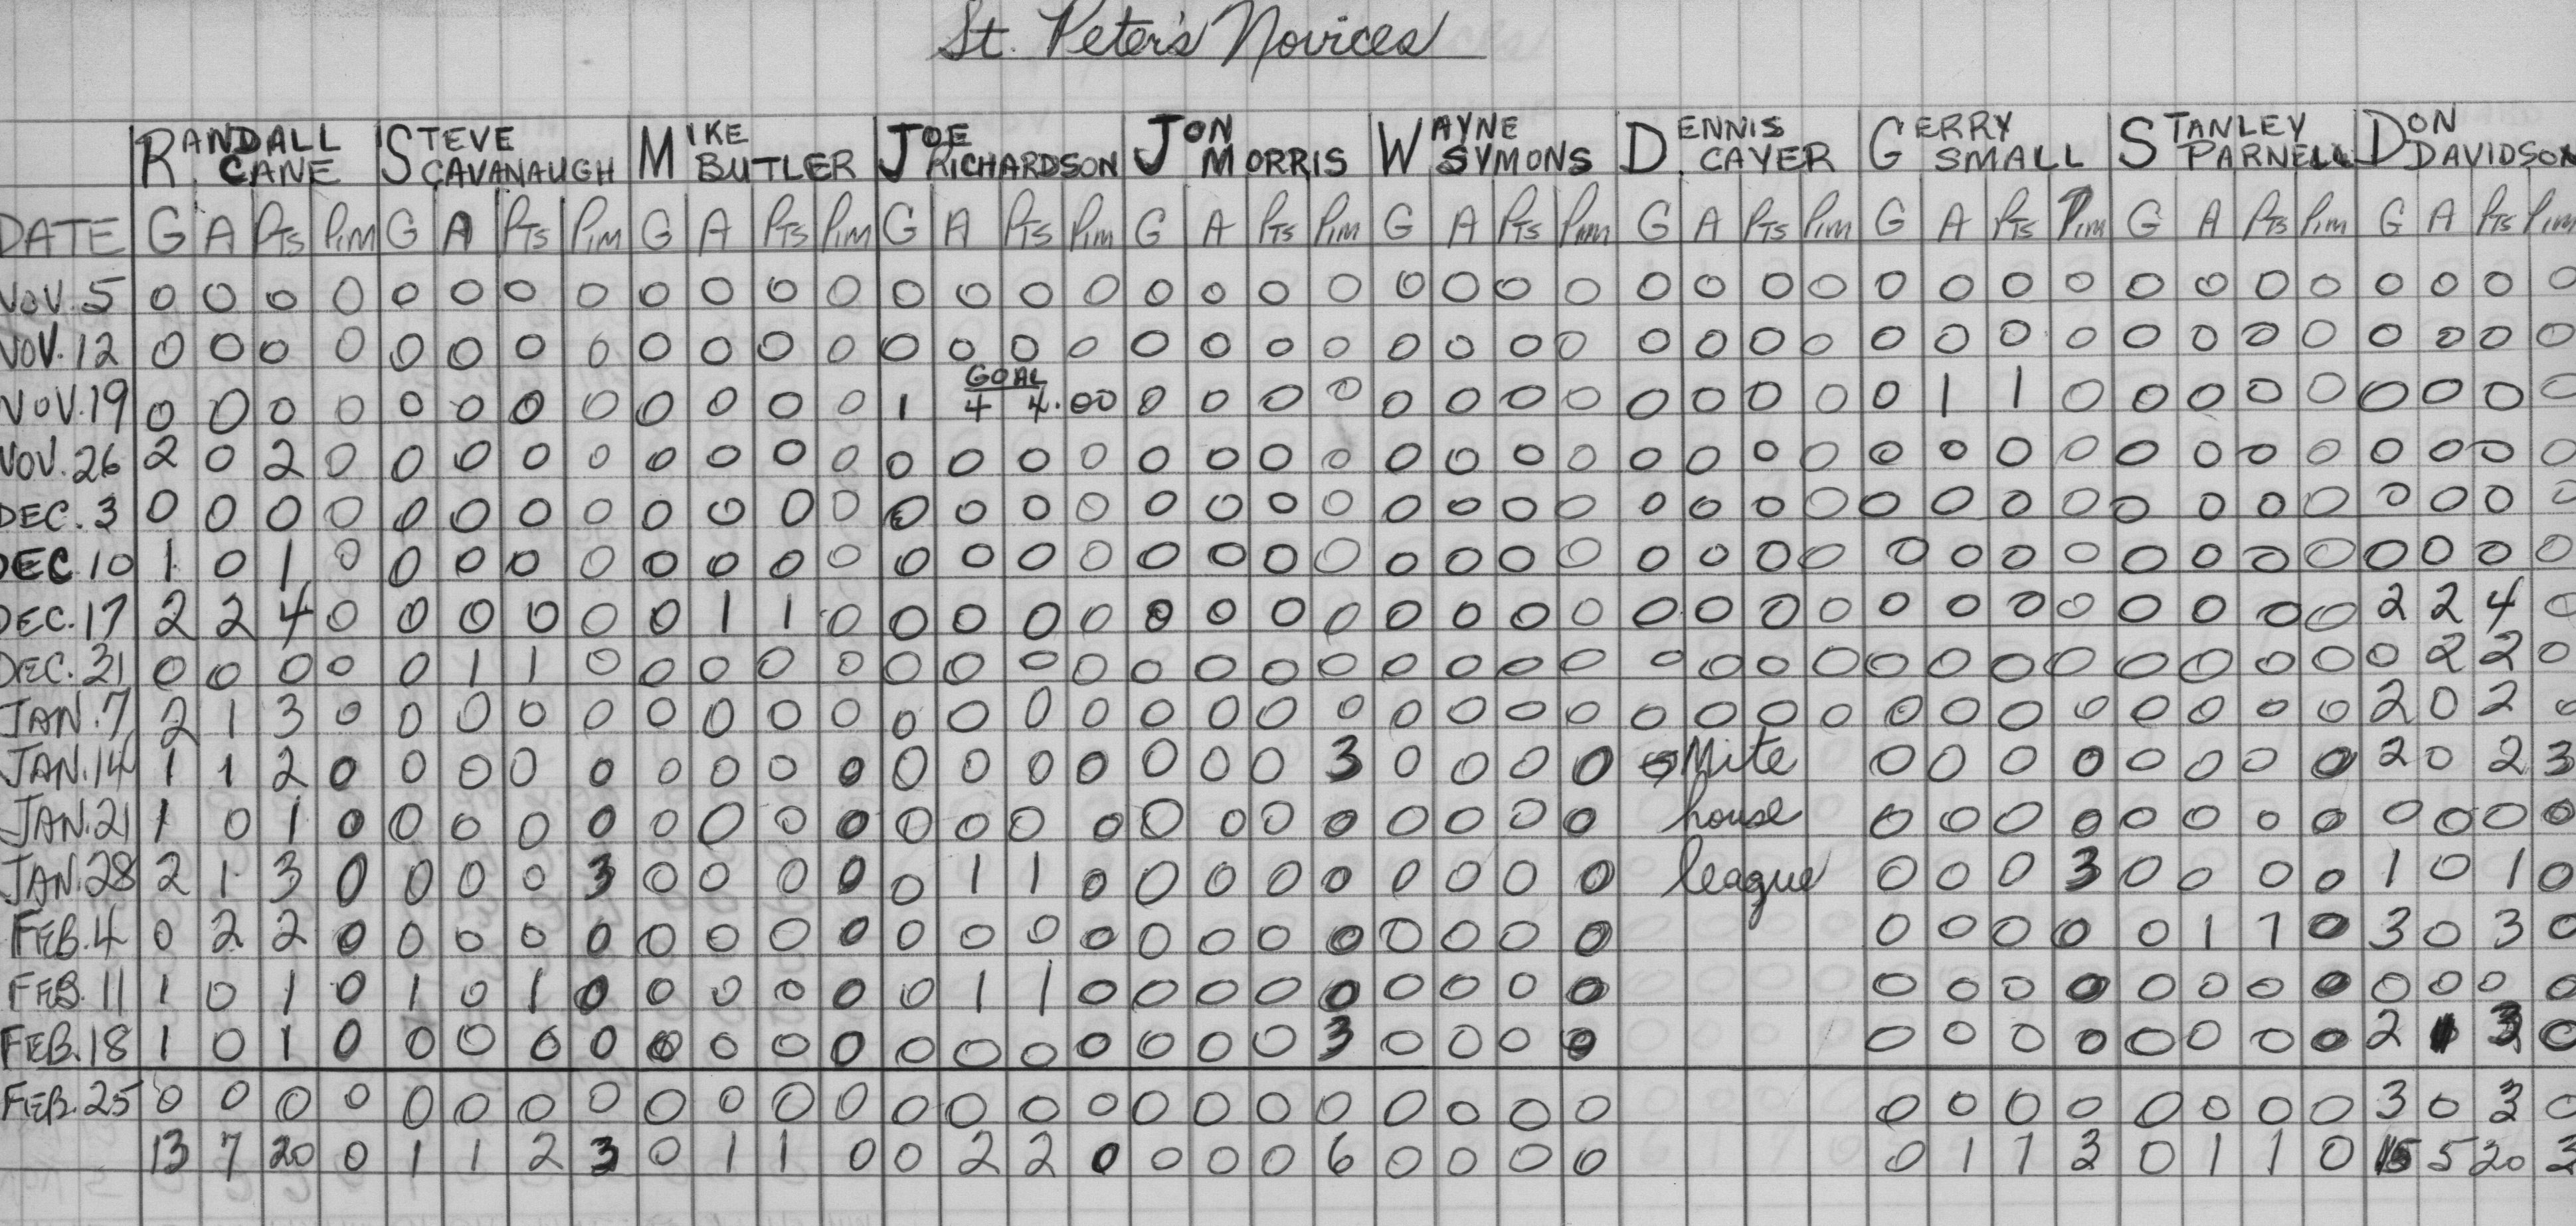 St. Peter's Novices
RANDALL CANE STEVE CAVANAUGH MIKE BUTLER JOE RICHARDSON JON MORRIS WAYNE SYMONS DENNIS CAYER GERRY SMALL STANLEY PARNELL DON DAVIDSON
DATE G A Pts Pim G A Pts Pim G A Pts Pim G A Pts Pim G A Pts Pim G A Pts Pim G A Pts Pim G A Pts Pim G A Pts Pim G A Pts Pim
NOV. 5 0 0 0 0 0 0 0 0 0 0 0 0 0 0 0 0 0 0 0 0 0 0 0 0 0 0 0 0 0 0 0 0 0 0 0 0 0 0 0 0
NOV. 12 0 0 0 0 0 0 0 0 0 0 0 0 0 0 0 0 0 0 0 0 0 0 0 0 0 0 0 0 0 0 0 0 0 0 0 0 0 0 0 0
NOV. 19 0 0 0 0 0 0 0 0 0 0 0 0 1 GOAL 4 4.00 0 0 0 0 0 0 0 0 0 0 0 0 0 1 1 0 0 0 0 0 0 0 0 0
NOV. 26 2 0 2 0 0 0 0 0 0 0 0 0 0 0 0 0 0 0 0 0 0 0 0 0 0 0 0 0 0 0 0 0 0 0 0 0 0 0 0 0
DEC. 3 0 0 0 0 0 0 0 0 0 0 0 0 0 0 0 0 0 0 0 0 0 0 0 0 0 0 0 0 0 0 0 0 0 0 0 0 0 0 0 0
DEC 10 1 0 1 0 0 0 0 0 0 0 0 0 0 0 0 0 0 0 0 0 0 0 0 0 0 0 0 0 0 0 0 0 0 0 0 0 0 0 0 0
DEC. 17 2 2 4 0 0 0 0 0 0 1 1 0 0 0 0 0 0 0 0 0 0 0 0 0 0 0 0 0 0 0 0 0 0 0 0 0 2 2 4 0
DEC. 31 0 0 0 0 0 1 1 0 0 0 0 0 0 0 0 0 0 0 0 0 0 0 0 0 0 0 0 0 0 0 0 0 0 0 0 0 0 2 2 0
JAN. 7 2 1 3 0 0 0 0 0 0 0 0 0 0 0 0 0 0 0 0 0 0 0 0 0 0 0 0 0 0 0 0 0 0 0 0 0 2 0 2 0
JAN. 14 1 1 2 0 0 0 0 0 0 0 0 0 0 0 0 0 0 0 0 3 0 0 0 0 Mite 0 0 0 0 0 0 0 0 2 0 2 3
JAN. 21 1 0 1 0 0 0 0 0 0 0 0 0 0 0 0 0 0 0 0 0 0 0 0 0 house 0 0 0 0 0 0 0 0 0 0 0 0
JAN. 28 2 1 3 0 0 0 0 3 0 0 0 0 0 1 1 0 0 0 0 0 0 0 0 0 league 0 0 0 3 0 0 0 0 1 0 1 0
FEB. 4 0 2 2 0 0 0 0 0 0 0 0 0 0 0 0 0 0 0 0 0 0 0 0 0 0 0 0 0 0 1 1 0 3 0 3 0
FEB. 11 1 0 1 0 1 0 1 0 0 0 0 0 0 1 1 0 0 0 0 0 0 0 0 0 0 0 0 0 0 0 0 0 0 0 0 0
FEB. 18 1 0 1 0 0 0 0 0 0 0 0 0 0 0 0 0 0 0 0 3 0 0 0 0 0 0 0 0 0 0 0 0 2 1 3 0
FEB. 25 0 0 0 0 0 0 0 0 0 0 0 0 0 0 0 0 0 0 0 0 0 0 0 0 0 0 0 0 0 0 0 0 3 0 3 0
13 7 20 0 1 1 2 3 0 1 1 0 0 2 2 0 0 0 0 6 0 0 0 0 0 1 1 3 0 1 1 0 15 5 20 3